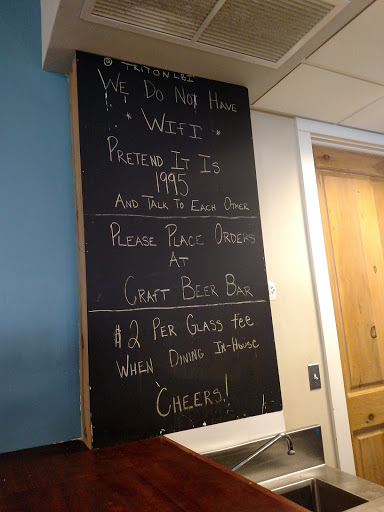 @ TRITONLBI
WE DO NOT HAVE
* WIFI *
PRETEND IT IS
1995
AND TALK TO EACH OTHER
PLEASE PLACE ORDERS
AT
CRAFT BEER BAR
$2 PER GLASS fee
WHEN DINING IN-HOUSE
CHEERS!